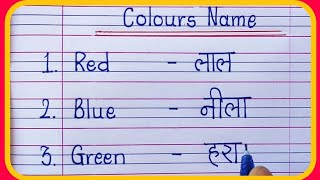 Colours Name
1. Red - लाल
2. Blue - नीला
3. Green - हरा